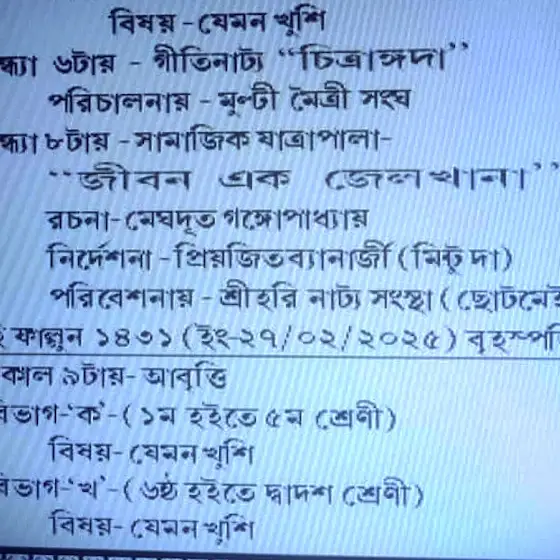 বিষয় - যেমন খুশি
ন্ধ্যা ৬টায় - গীতিনাট্য "চিত্রাঙ্গদা"
পরিচালনায় - মুন্টী মৈত্রী সংঘ
ন্ধ্যা ৮টায় - সামাজিক যাত্রাপালা-
"জীবন এক জেলখানা"
রচনা-মেঘদূত গঙ্গোপাধ্যায়
নির্দেশনা - প্রিয়জিত ব্যানার্জী (মিঠু দা)
পরিবেশনায় - শ্রীহরি নাট্য সংস্থা (
ফাল্গুন ১৪৩১ (ইং-২৭/০২/২০২৫) বৃহস্পতি
কাল ৯টায়- আবৃত্তি
বিভাগ-'ক'- (১ম হইতে ৫ম শ্রেণী)
বিষয়- যেমন খুশি
বিভাগ-'খ'- (৬ষ্ঠ হইতে দ্বাদশ শ্রেণী)
বিষয়- যেমন খুশি